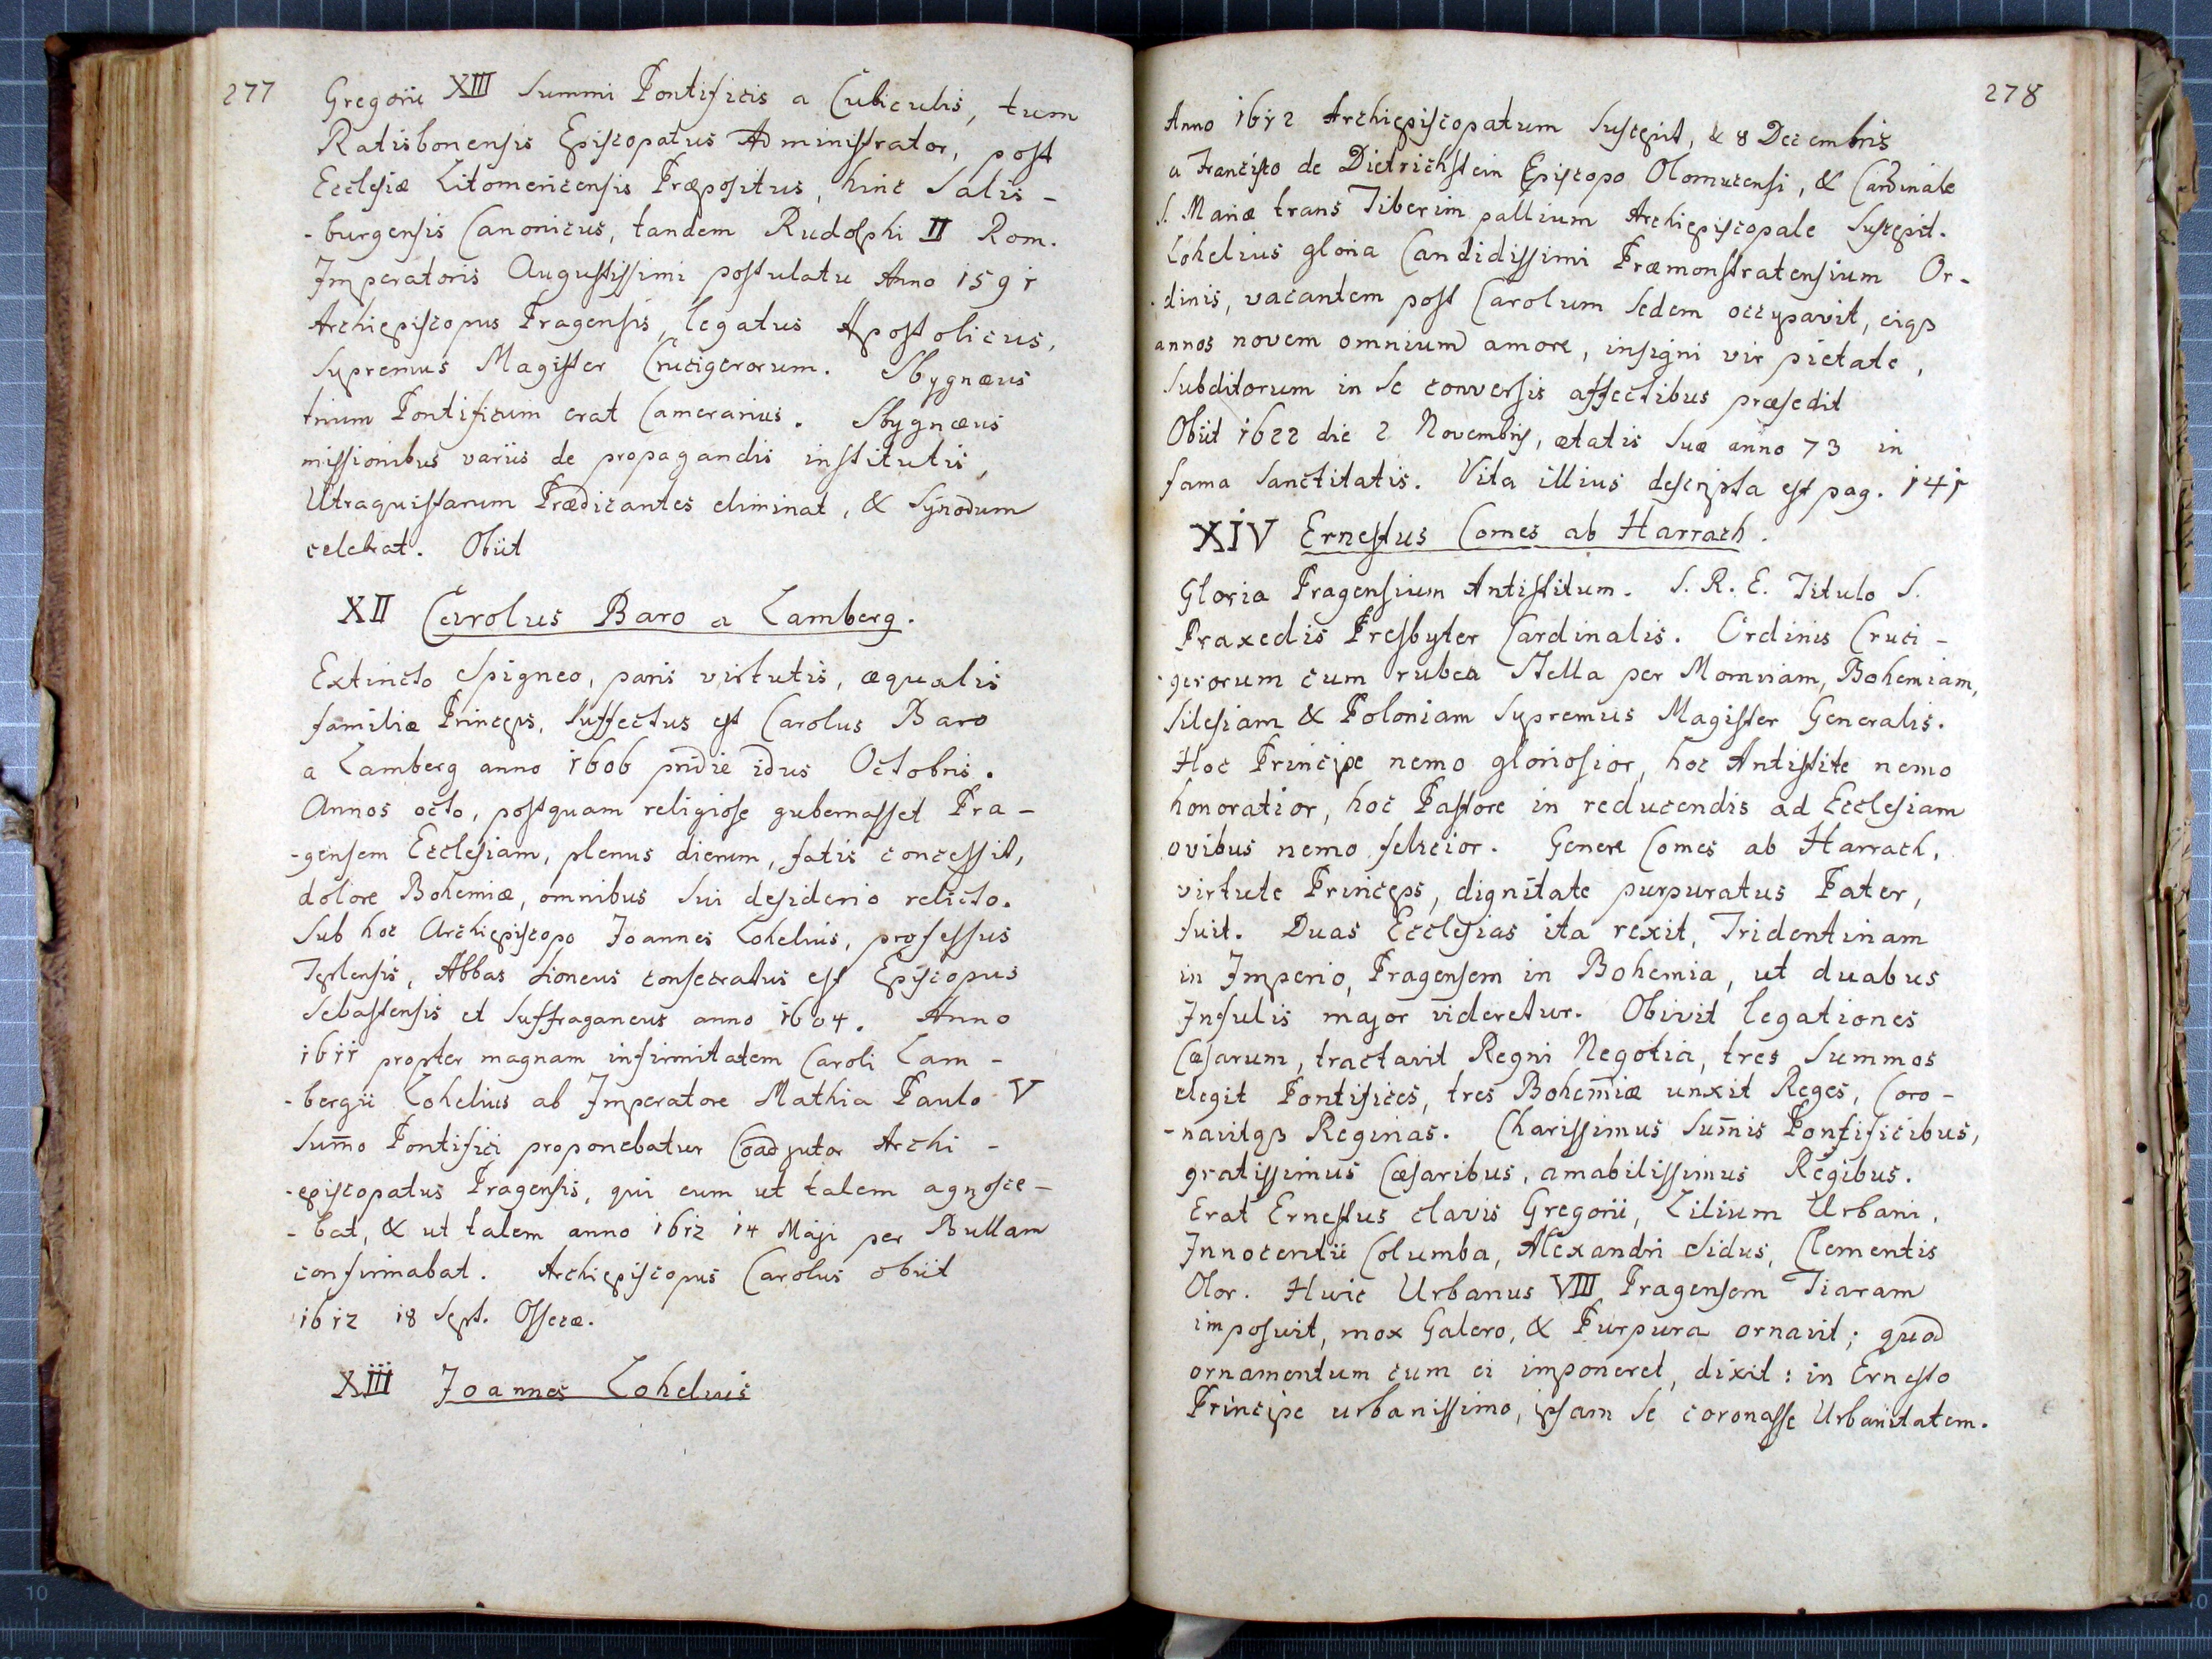 277
Gregorii XIII Summi Pontificis a Cubiculis, tum
Ratisbonensis Episcopatus Administrator, post
Ecclesiæ Litomericensis Præpositus, hinc Salis-
-burgensis Canonicus, tandem Rudolphi II Rom.
Imperatoris Augustissimi postulatu Anno 1591
Archiepiscopus Pragensis, legatus Apostolicus,
Supremus Magister Crucigerorum. Sbygnæus
trium Pontificum erat Camerarius. Sbygnæus
missionibus variis de propagandis institutis,
Utraquistarum Prædicantes eliminat, & Synodum
celebrat. Obiit
XII Carolus Baro a Lamberg.
Extincto Spigneo, paris virtutis, æqualis
familiæ Princeps, suffectus est Carolus Baro
a Lamberg anno 1606 pridie idus Octobris.
Annos octo, postquam religiose gubernasset Pra-
-gensem Ecclesiam, plenus dierum, fatis concessit,
dolore Bohemiæ, omnibus sui desiderio relicto.
Sub hoc Archiepiscopo Joannes Lohelius, professus
Teplensis, Abbas Sioneus consecratus est Episcopus
Sebastensis et Suffraganeus anno 1604. Anno
1611 propter magnam infirmitatem Caroli Lam-
-bergii Lohelius ab Imperatore Mathia Paulo V
Sum̄o Pontifici proponebatur Coadjutor Archi-
-episcopatus Pragensis, qui eum ut talem agnosce-
-bat, & ut talem anno 1612 14 Maji per Bullam
confirmabat. Archiepiscopus Carolus obiit
1612 18 Sept. Osseca.
XIII Joannes Lohelius
278
Anno 1612 Archiepiscopatum suscepit, & 8 Decembris
a Francisco de Dietrichstein Episcopo Olomucensi, & Cardinale
S. Mariæ trans Tiberim pallium Archiepiscopale suscepit.
Lohelius gloria Candidissimi Præmonstratensium Or-
-dinis, vacantem post Carolum Sedem occupavit, eiqꝫ
annos novem omnium amore, insigni vir pietate,
Subditorum in se conversis affectibus præsedit
Obiit 1622 die 2 Novembris, ætatis suæ anno 73 in
fama Sanctitatis. Vita illius descripta est pag. 141
XIV Ernestus Comes ab Harrach.
Gloria Pragensium Antistitum. S. R. E. Titulo S.
Praxedis Presbyter Cardinalis. Ordinis Cruci-
-gerorum cum rubea Stella per Moraviam, Bohemiam,
Silesiam & Poloniam Supremus Magister Generalis.
Hoc Principe nemo gloriosior, hoc Antistite nemo
honoratior, hoc Pastore in reducendis ad Ecclesiam
ovibus nemo felicior. Genere Comes ab Harrach,
virtute Princeps, dignitate purpuratus Pater,
fuit. Duas Ecclesias ita rexit, Tridentinam
in Imperio, Pragensem in Bohemia, ut duabus
Infulis major videretur. Obivit legationes
Cæsarum, tractavit Regni Negotia, tres Summos
elegit Pontifices, tres Bohemiæ unxit Reges, Coro-
-navitqꝫ Reginas. Charissimus Sum̄is Pontificibus,
gratissimus Cæsaribus, amabilissimus Regibus.
Erat Ernestus clavis Gregorii, Lilium Urbani,
Innocentii Columba, Alexandri Sidus, Clementis
Olor. Huic Urbanus VIII Pragensem Tiaram
imposuit, mox Galero, & Purpura ornavit; quod
ornamentum cum ei imponeret, dixit: in Ernesto
Principe urbanissimo, ipsam se coronasse Urbanitatem.
10